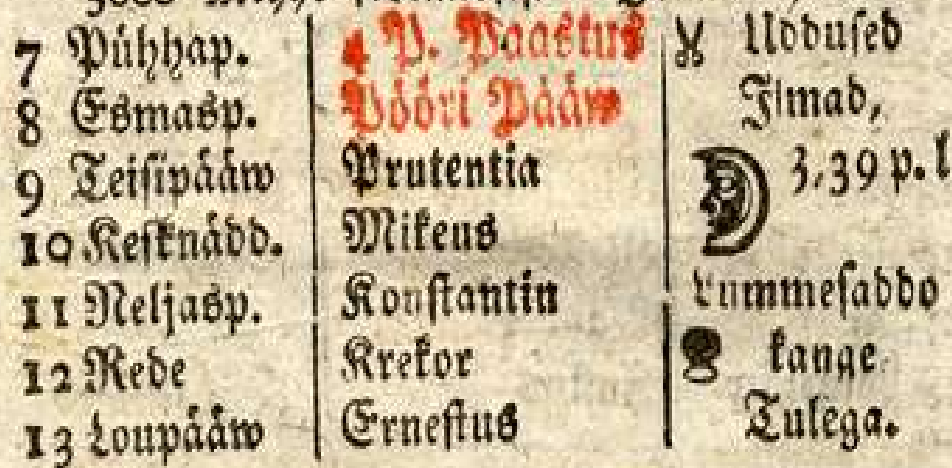 7 Pühhap. 4 P. Paastus Uddused
8 Esmasp. Pööri Pääw Jlmad,
9 Teisipääw Prutentia 3,39 p. l
10 Kesknädd. Mikeus
11 Neljasp. Konstantin Lummesaddo
12 Rede Krekor kange
13 Loupääw Ernestus Tulega.